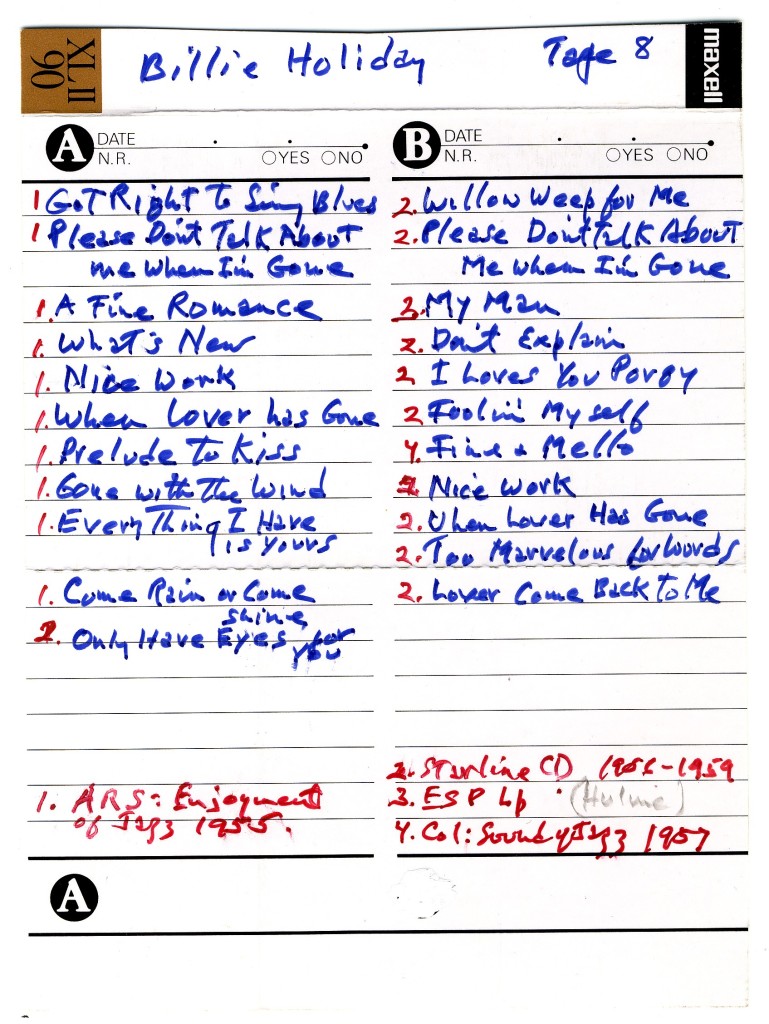 XL II 90
Billie Holiday
Tape 8
maxell
A DATE
N.R. ○YES ○NO
1 Got Right To Sing Blues
1 Please Don't Talk About
me when I'm Gone
1. A Fine Romance
1. What's New
1. Nice Work
1. When Lover has Gone
1. Prelude to Kiss
1. Gone with The Wind
1. EveryThing I Have
is yours
1. Come Rain or Come
shine
1. Only Have Eyes for
you
1. ARS: Enjoyment
of Jazz 1955.
B DATE
N.R. ○YES ○NO
2. Willow Weep for Me
2. Please Don't Talk About
Me when I'm Gone
3. My Man
2. Don't Explain
2 I Loves You Porgy
2 Foolin' Myself
4. Fine + Mello
2. Nice Work
2. When Lover Has Gone
2. Too Marvelous for Words
2. Lover Come Back To Me
2. Starline CD - 1959
3. ESP Lp
4. Col: Sound of Jazz 1957
A